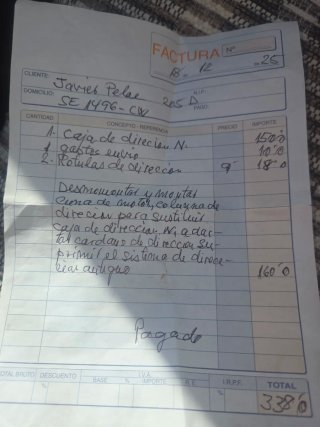 FACTURA Nº
18 - 12 - 25
CLIENTE: Javier Pelae
N.I.F.:
DOMICILIO: SE 1496-CW 205 D
PAGO:
CANTIDAD CONCEPTO - REFERENCIA PRECIO IMPORTE
1 Caja de direcion N. 1500
1 gastos envio 100
2 Rotulas de direccion 180
Desmomontar y montar
cuna de motor, columna de
direcion para sustituir
caja de direccion N, adar-
tar cardano de direccion su-
primit el sistema de direc-
cion antiguo 1600
Pagado
TOTAL BRUTO DESCUENTO I.V.A. I.R.P.F. TOTAL
% BASE % IMPORTE R.E.
3380